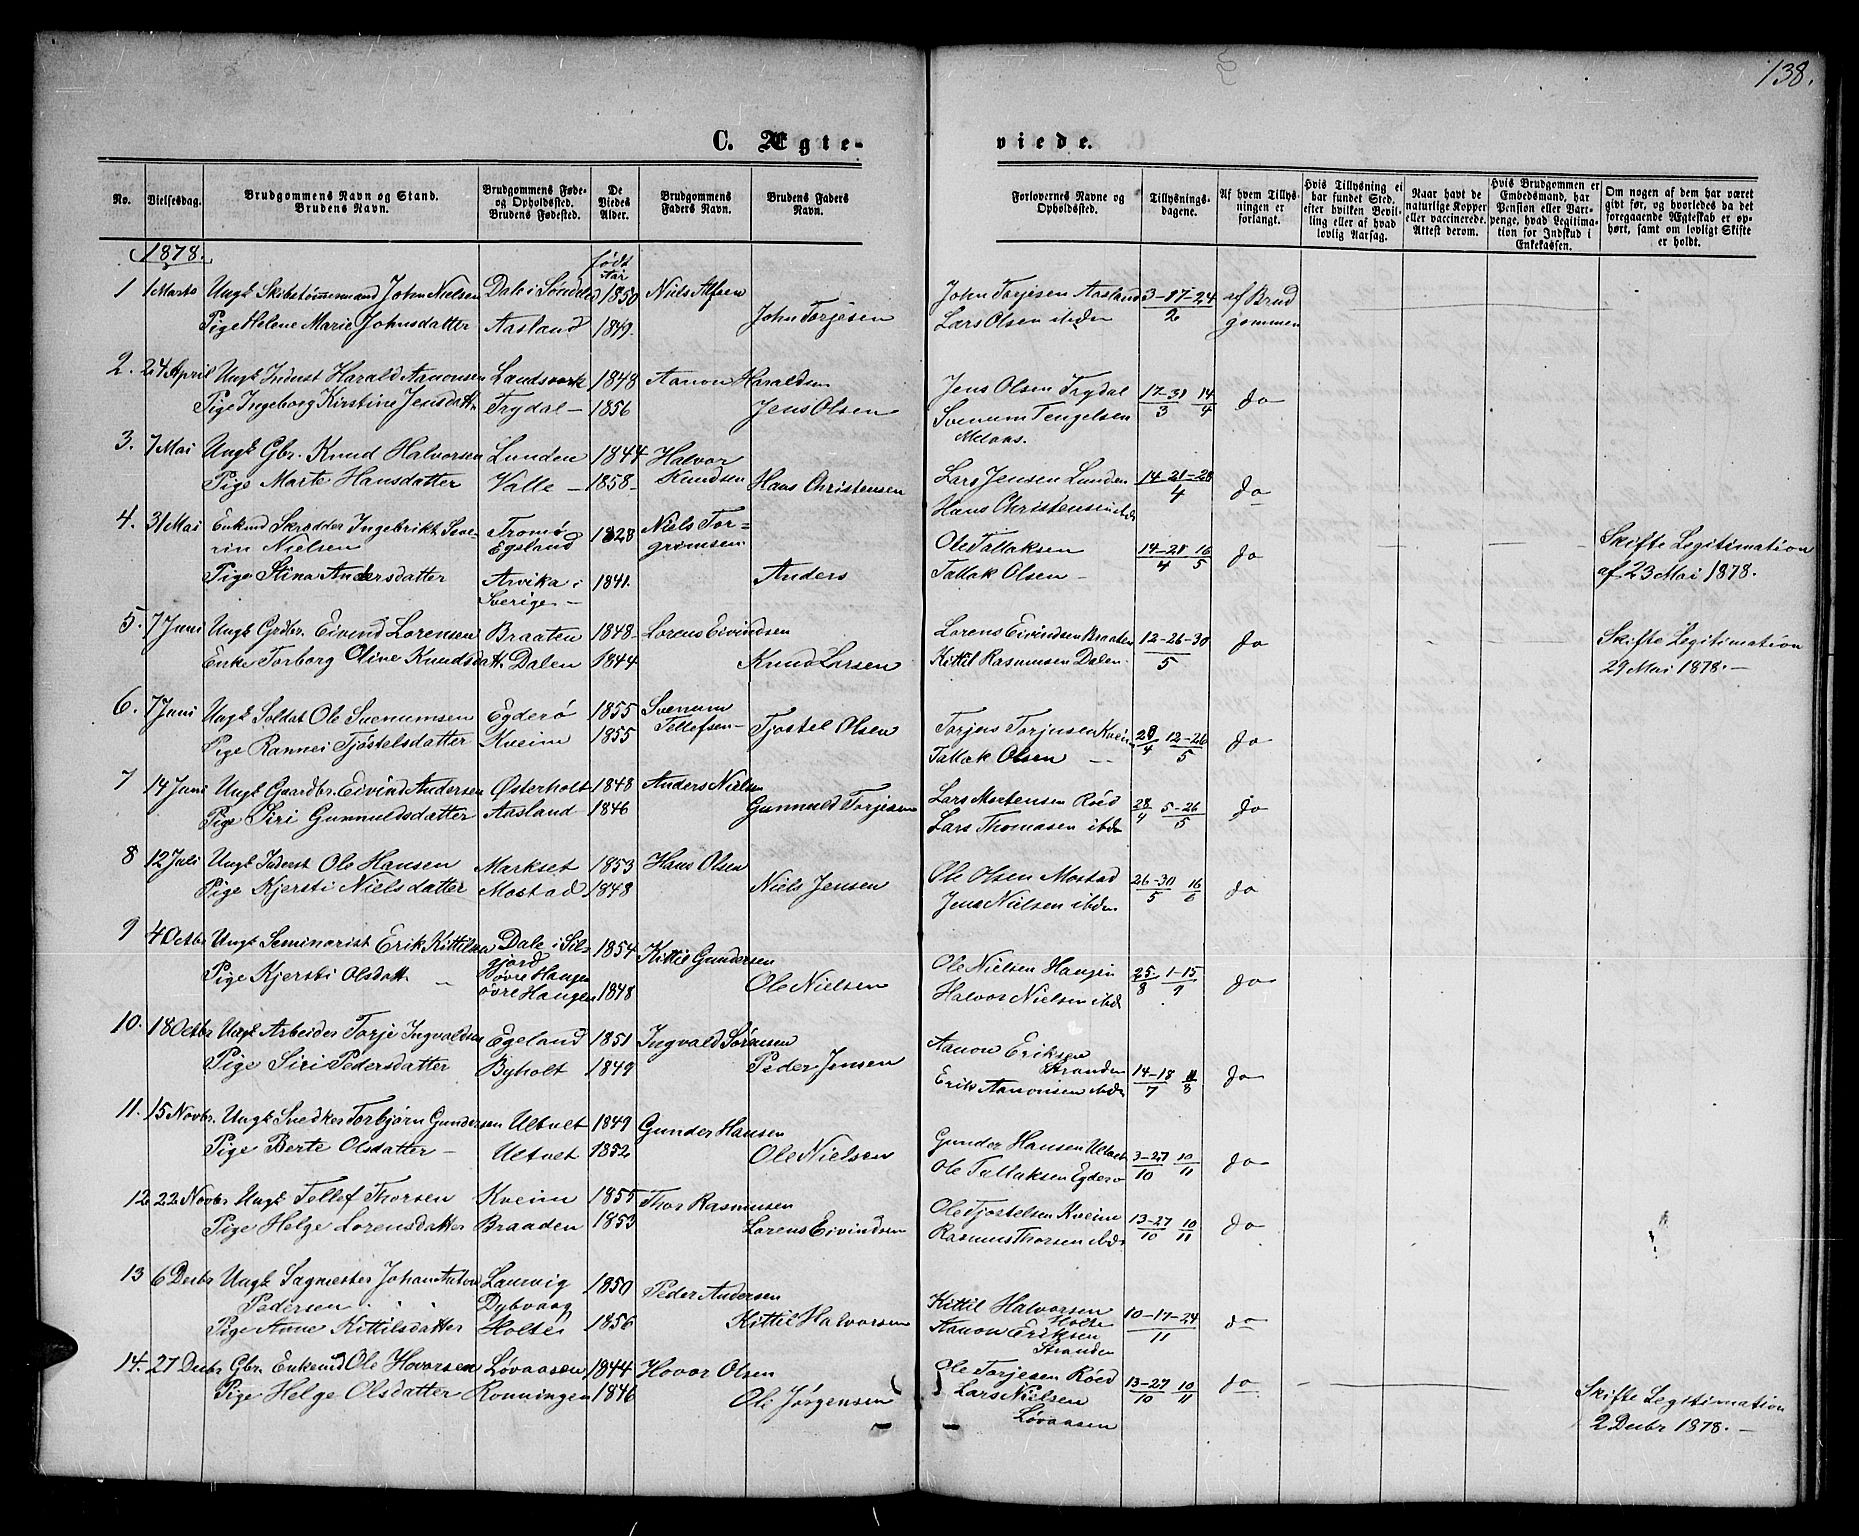 138.
C. Ægte- viede.
No. Vielsesdag. Brudgommens Navn og Stand. Brudens Navn. Brudgommens Føde- og Opholdssted. Brudens Fødested. De Viedes Alder. Brudgommens Faders Navn. Brudens Faders Navn. Forlovernes Navne og Opholdssted. Tillysnings-dagene. Af hvem Tillysningen er forlangt. Hvis Tillysning ei har fundet Sted, efter hvilken Bevilling eller af hvad lovlig Aarsag. Naar havt de naturlige Kopper eller vaccinerede. Attest derom. Hvis Brudgommen er Embedsmand, har Pension eller Vartpenge, hvad Legitimation for Indskud i Enkekassen. Om nogen af dem har været gift før, og hvorledes da det foregaaende Ægteskab er ophørt, samt om lovligt Skifte er holdt.
1878. født Aar
1 1 Marts Ungk Skibstømmermand John Nielsen Dale i 1850 Niels Alfsen John Torjesen Aasland 3-17-24/2 af Brud
Pige Helene Marie Johnsdatter Aasland 1849. John Torjesen Lars Olsen ibden gommen
2. 24 April Ungk Inderst Harald Aanonsen Landsverk 1848 Aanon Haraldsen Jens Olsen Trydal 17-31/3 14/4 do
Pige Ingeborg Kirstine Jensdatt. Trydal - 1856 Jens Olsen Svenum Tengelsen
Melaas.
3. 7 Mai Ungk Gbr. Knud Halvorsen Lunden 1844 Halvor Lars Jensen Lunden 14-21-28/4 do
Pige Marte Hansdatter Valle - 1858 - Knudsen Hans Christensen Hans Christensen ibd
4. 31 Mai Enkmd Skrædder Ingebrikt Seve- Tromø 1828 Niels Tor= Ole Tallaksen 14-28/4 16/5 do Skifte Legitimation
rin Nielsen Egeland grimsen Tallak Olsen - af 23 Mai 1878.
Pige Stina Andersdatter Arvika i 1841. Anders
Sverige -
5. 7 Juni Ungk Grdbr. Eivind Lorensen Braaten 1848 - Lorens Eivindsen Lorens Eivindsen Braaten 12-26-30/5 do Skifte Legitimation
Enke Torborg Olive Knudsdatt. Dalen 1844 Knud Larsen Kittil Rasmussen Dalen 29 Mai 1878. -
6. 7 Juni Ungk Soldat Ole Svenumsen Egderø 1855 Svenum Torjus Torjusen Kveim 28/4 12-26/5 do
Pige Rannei Tjøstelsdatter Kveim 1855 Tellefsen - Tjostel Olsen Tallak Olsen -
7 14 Juni Ungk Gaardbr. Eivind Andersen Østerholt 1848 Anders Nielsen Lars Mortensen Röed 28/4 5-26/5 do
Pige Siri Gunnuldsdatter Aasland 1846 Gunnuld Torjesen Lars Thomasen ibden
8 12 Juli Ungk Inderst Ole Hansen Markset 1853 Hans Olsen Ole Olsen Mostad 26-30/5 16/6 do
Pige Kjersti Nielsdatter Mostad 1848 Niels Jensen Jens Nielsen ibden
9 4 Octbr Ungk Seminarist Erik Kittilsen Dale i Sil- 1854 Kittil Gundersen Ole Nielsen Haugen 25/8 1-15/9 do
Pige Kjersti Olsdatt. jord Ole Nielsen Halvor Nielsen ibd
øvre Haugen
øvre Haugen 1848
10. 18 Octbr Ungk Arbeider Torje Ingvaldsen Egeland 1851 Ingvald Sørensen Aanon Eriksen
Stranden
Pige Siri Pedersdatter Byholt 1849 Peder Jensen Erik Aanonsen ibd 14-18/7 11/8 do
11. 15 Novbr. Ungk Snedker Torbjørn Gundersen Ultvet 1849 Gunder Hansen Gunder Hansen Ultvet 3-27/10 10/11 do
Pige Berte Olsdatter - Ultvet 1852 Ole Nielsen Ole Tallaksen Egderø
12 22 Novbr Ungk Tellef Thorsen Kveim 1855 Thor Rasmusen Ole Tjostelsen Kveim 13-27/10 10/11 do
Pige Helge Lorensdatter Braaden 1853 Lorens Eivindsen Rasmus Thorsen ibd
13 6 Decbr Ungk Sagmester Johan Anton Laurvig 1850 Peder Andersen Kittil Halvorsen 10-17-24/11 do
Pedersen Dybvaag Holte
Pige Anne Kittilsdatter Holte 1856 Kittil Halvorsen Aanon Eriksen
Stranden
14. 27 Decbr Gbr. Enkemd Ole Hovorsen Løvaasen 1844 Hovor Olsen Ole Torjesen Röed 13-27/10 10/11 do Skifte Legitimation
Pige Helge Olsdatter Rønningen 1846 Ole Jørgensen Lars Nielsen 2 Decbr 1878. -
Løvaasen